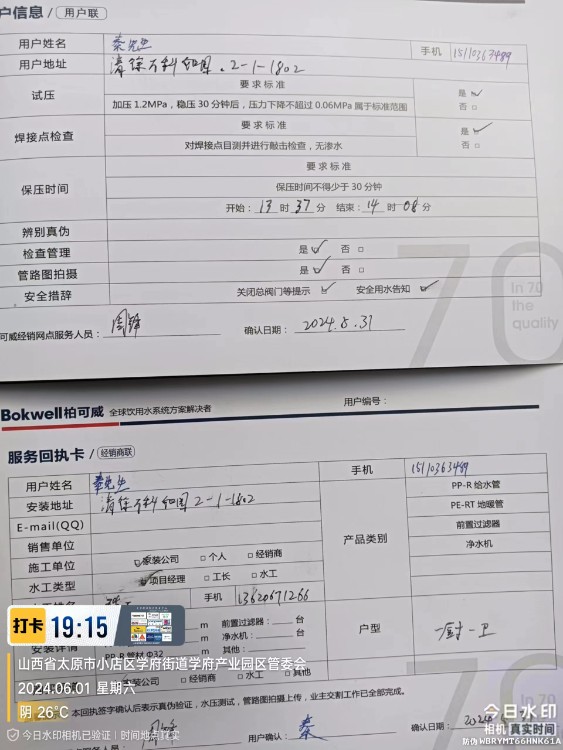 户信息 / 用户联
用户姓名 秦先生 手机 15110363489
用户地址 清徐万科紅园.2-1-1802
试压 要求标准 是
加压 1.2MPa，稳压 30 分钟后，压力下降不超过 0.06MPa 属于标准范围 否
焊接点检查 要求标准 是
对焊接点目测并进行敲击检查，无渗水 否
保压时间 要求标准
保压时间不得少于 30 分钟
开始：13 时 37 分 结束：14 时 08 分
辨别真伪
检查管理 是 否
管路图拍摄 是 否
安全措辞 关闭总阀门等提示 安全用水告知
可威经销网点服务人员： 确认日期：2024.5.31
70
In 70
the
quality
Bokwell柏可威 全球饮用水系统方案解决者 用户编号：
服务回执卡 / 经销商联
用户姓名 秦先生 手机 15110363489
安装地址 清徐万科紅园 2-1-1802
E-mail(QQ)
销售单位
施工单位 家装公司 个人 经销商
水工类型 项目经理 工长 水工
产品类别
PP-R 给水管
PE-RT 地暖管
前置过滤器
净水机
手机 13620671266
m 前置过滤器： 台
安装详情 m 净水机： 台
PP-R 管材 Φ32 m 其他：
户型 一厨一卫
家装公司 经销商 水工 其他
本回执签字确认后表示真伪验证，水压测试，管路图拍摄上传，业主交割工作已全部完成。
用户确认：秦 确认日期：
打卡 19:15
山西省太原市小店区学府街道学府产业园区管委会
2024.06.01 星期六
阴 26°C
今日水印相机已验证 | 时间地点真实
今日水印
相机 真实时间
防伪 WBRYMT66HMKG1A